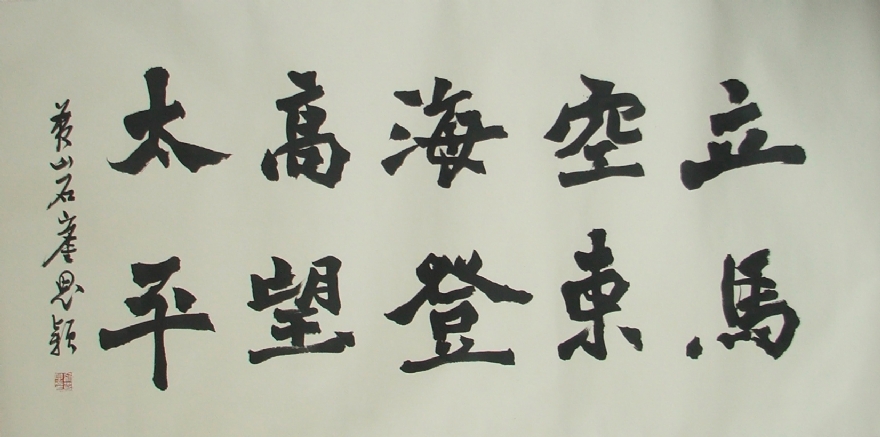 立馬
空東
海登
高望
太平
黄山石崖思颖